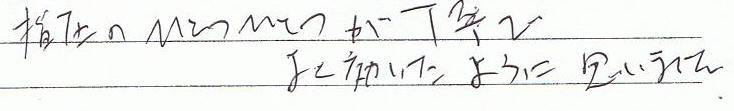 指圧の ひとつひとつ が 丁寧で
よく効いた ように 思いました